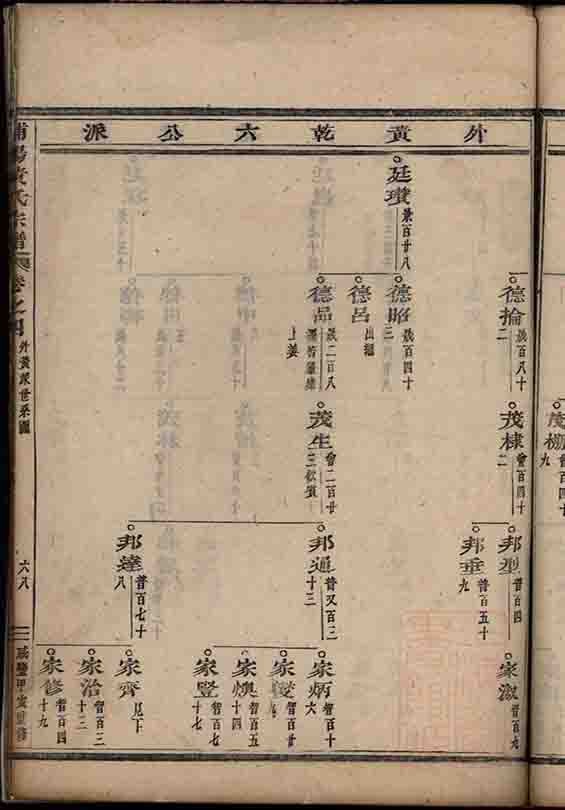 外黄乾六公派
廷瓚
景百廿八
德掄
崴百八十二
德昭
崴百四十三
德呂
出繼
德品
崴二百八
茂棣
曾百四十二
茂生
曾二百廿三
茂棚
曾百四十九
邦型
普百四
邦垂
普百五十九
邦通
普又百三十三
邦達
普百七十八
家溆
智百九
家炳
智百十六
家燠
智百五十四
家豐
智百七十七
家齊
見下
家治
智百三十二
家修
智百四十九
浦陽黄氏宗譜
卷之四
外黄派世系圖
六八
咸豐甲寅重修